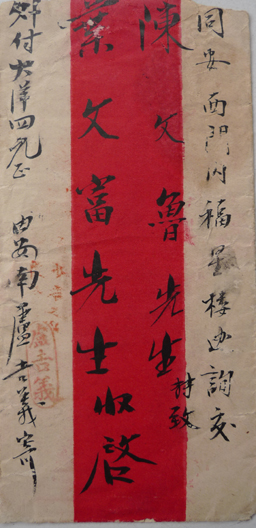 同安西門內福星樓迆詢交
陳文魯先生轉致
葉文富先生收啓
外付大洋四元正
由安南盧吉義寄
盧吉義